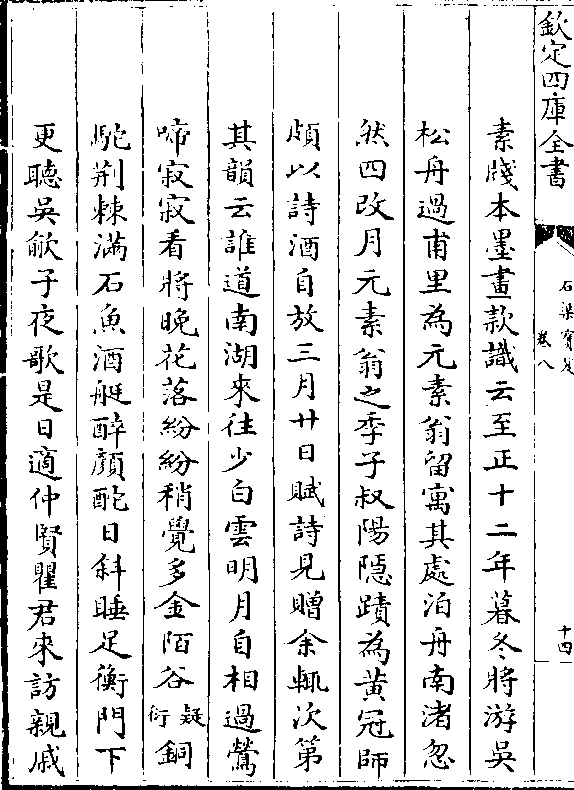 欽定四庫全書
石渠寶笈
卷八
十四
素牋本墨畫款識云至正十二年暮冬將游吳
松舟過甫里為元素翁留寓其處泊舟南渚忽
然四改月元素翁之季子叔陽隱蹟為黃冠師
頗以詩酒自放三月廿日賦詩見贈余輒次第
其韻云誰道南湖來往少白雲明月自相過鶯
啼寂寂看將晚花落紛紛稍覺多金陌谷疑衍銅
駝荆棘滿石魚酒艇醉顏酡日斜睡足衡門下
更聽吳歈子夜歌是日適仲賢瞿君來訪親戚